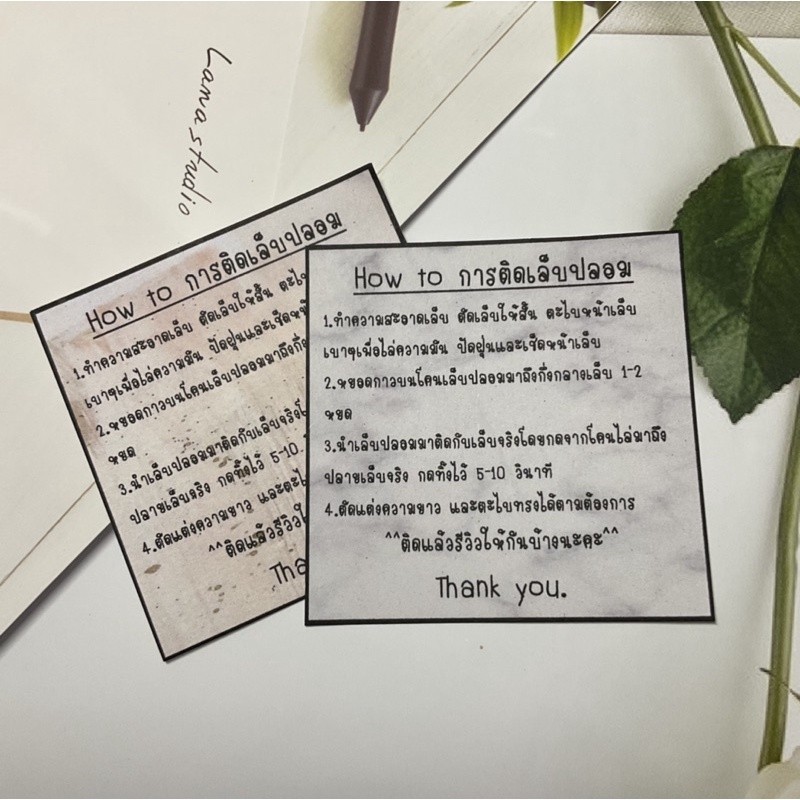 Lanastudio
How to การติดเล็บปลอม
1.ทำความสะอาดเล็บ ตัดเล็บให้สั้น ตะไบ
เบาๆเพื่อไล่ความมัน ปัดฝุ่นและเช็ดหน้
2.หยอดกาวบนโคนเล็บปลอมมาถึงกึ่ง
หยด
3.นำเล็บปลอมมาติดกับเล็บจริงโ
ปลายเล็บจริง กดทิ้งไว้ 5-10
4.ตัดแต่งความยาว และตะไ
^^ติดแล้วรีวิวใ
Tha
How to การติดเล็บปลอม
1.ทำความสะอาดเล็บ ตัดเล็บให้สั้น ตะไบหน้าเล็บ
เบาๆเพื่อไล่ความมัน ปัดฝุ่นและเช็ดหน้าเล็บ
2.หยอดกาวบนโคนเล็บปลอมมาถึงกึ่งกลางเล็บ 1-2
หยด
3.นำเล็บปลอมมาติดกับเล็บจริงโดยกดจากโคนไล่มาถึง
ปลายเล็บจริง กดทิ้งไว้ 5-10 วินาที
4.ตัดแต่งความยาว และตะไบทรงได้ตามต้องการ
^^ติดแล้วรีวิวให้กันบ้างนะคะ^^
Thank you.